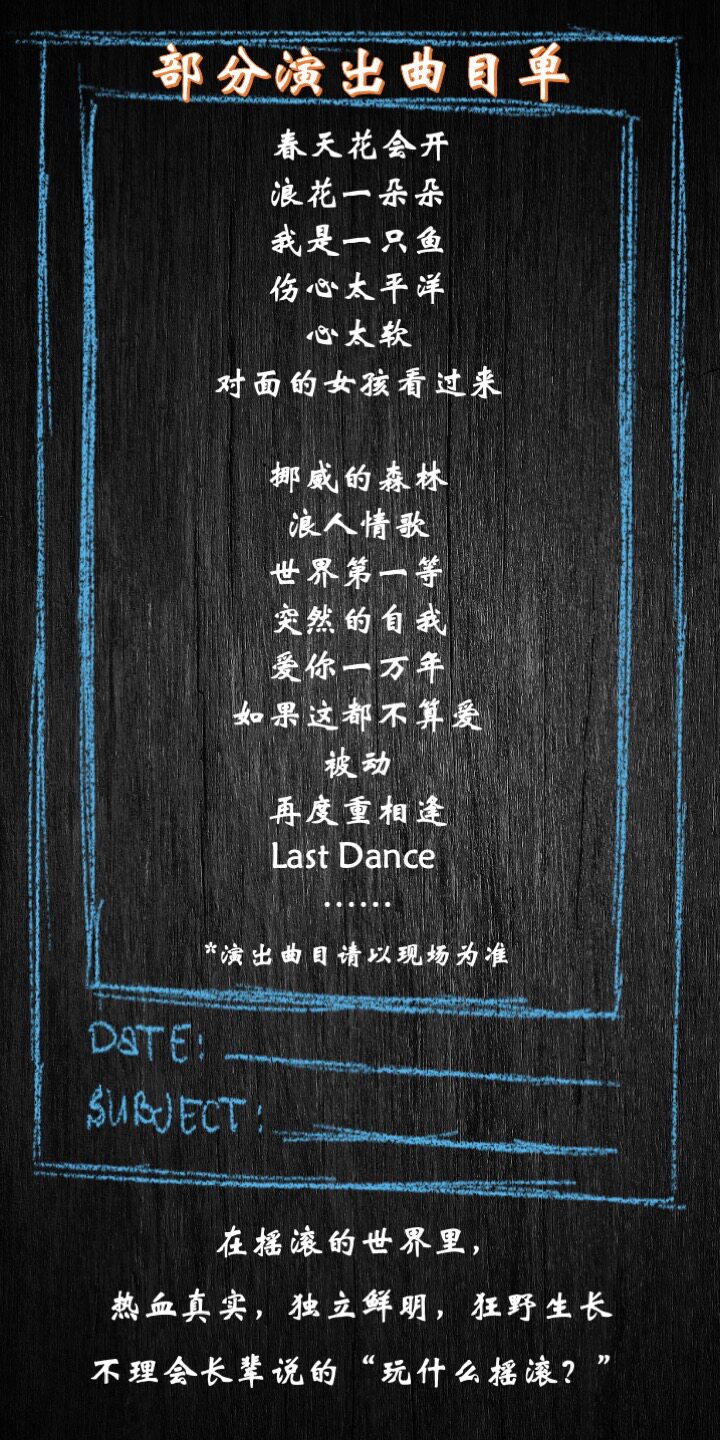 部分演出曲目单
春天花会开
浪花一朵朵
我是一只鱼
伤心太平洋
心太软
对面的女孩看过来
挪威的森林
浪人情歌
世界第一等
突然的自我
爱你一万年
如果这都不算爱
被动
再度重相逢
Last Dance
……
*演出曲目请以现场为准
DATE:
SUBJECT:
在摇滚的世界里，
热血真实，独立鲜明，狂野生长
不理会长辈说的“玩什么摇滚？”